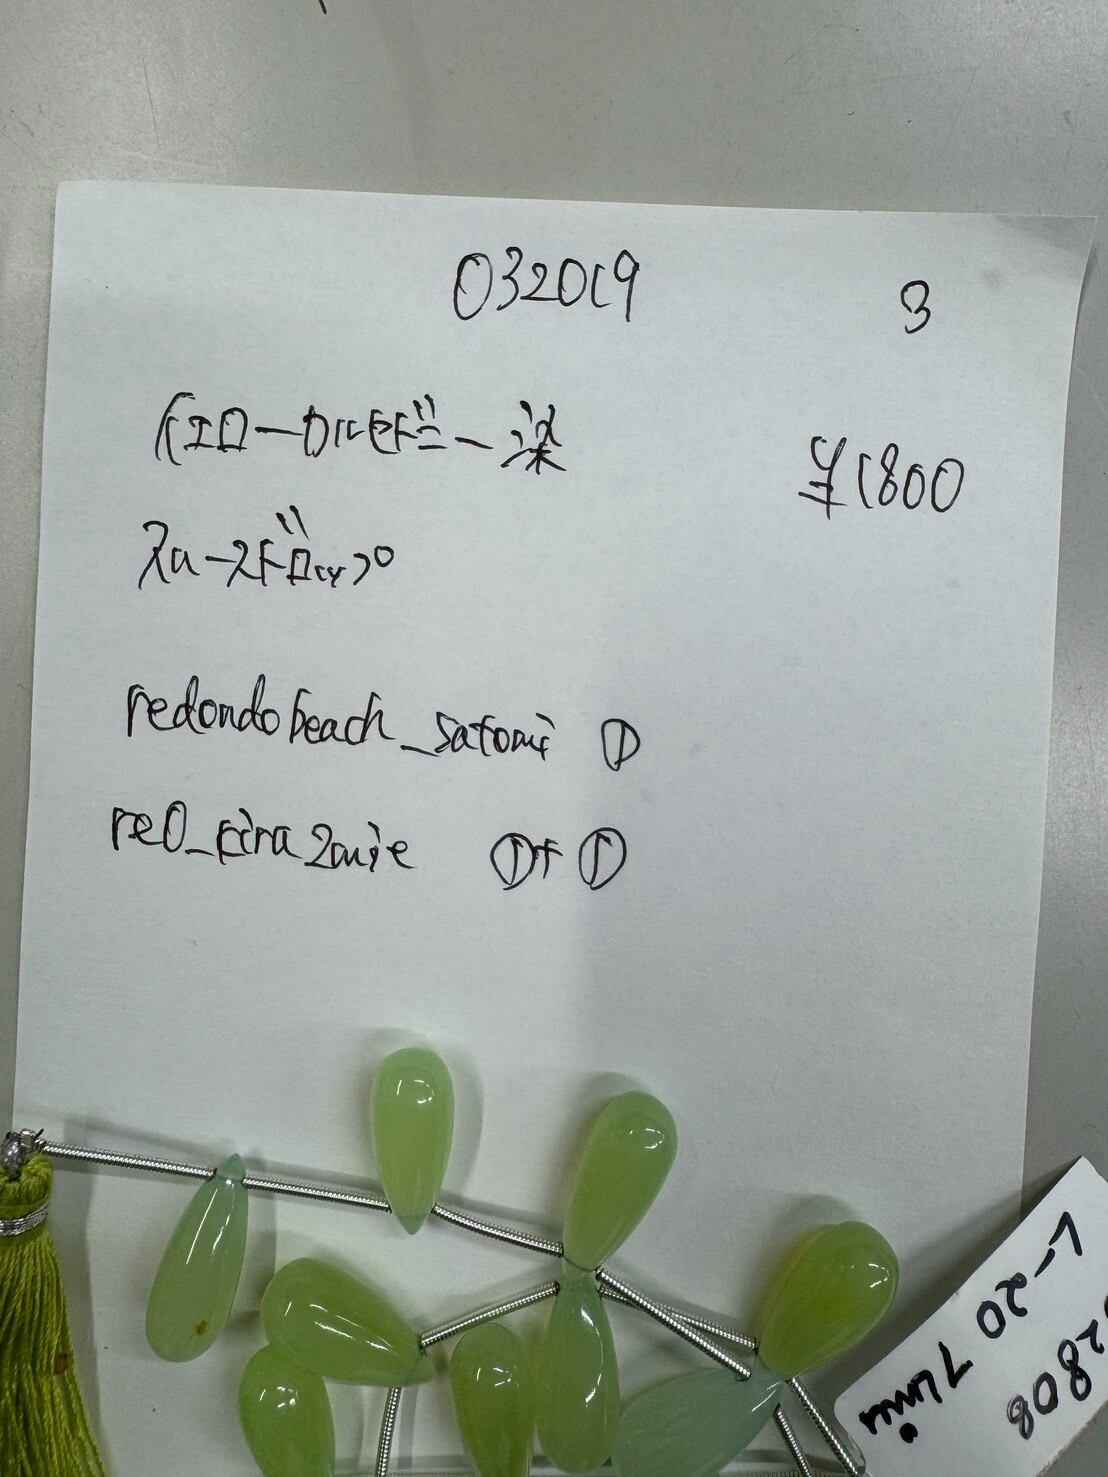 032019 3
イエローカルセドニー染 ¥1800
スムースドロップ
redondobeach_satomi ①
①+①
L-20 7
2808